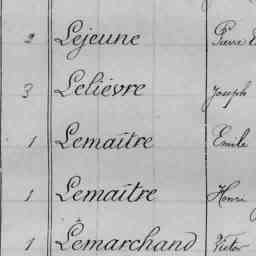 2 Lejeune Pierre
3 Lelièvre Joseph
1 Lemaître Emile
1 Lemaître Henri
1 Lemarchand Victor